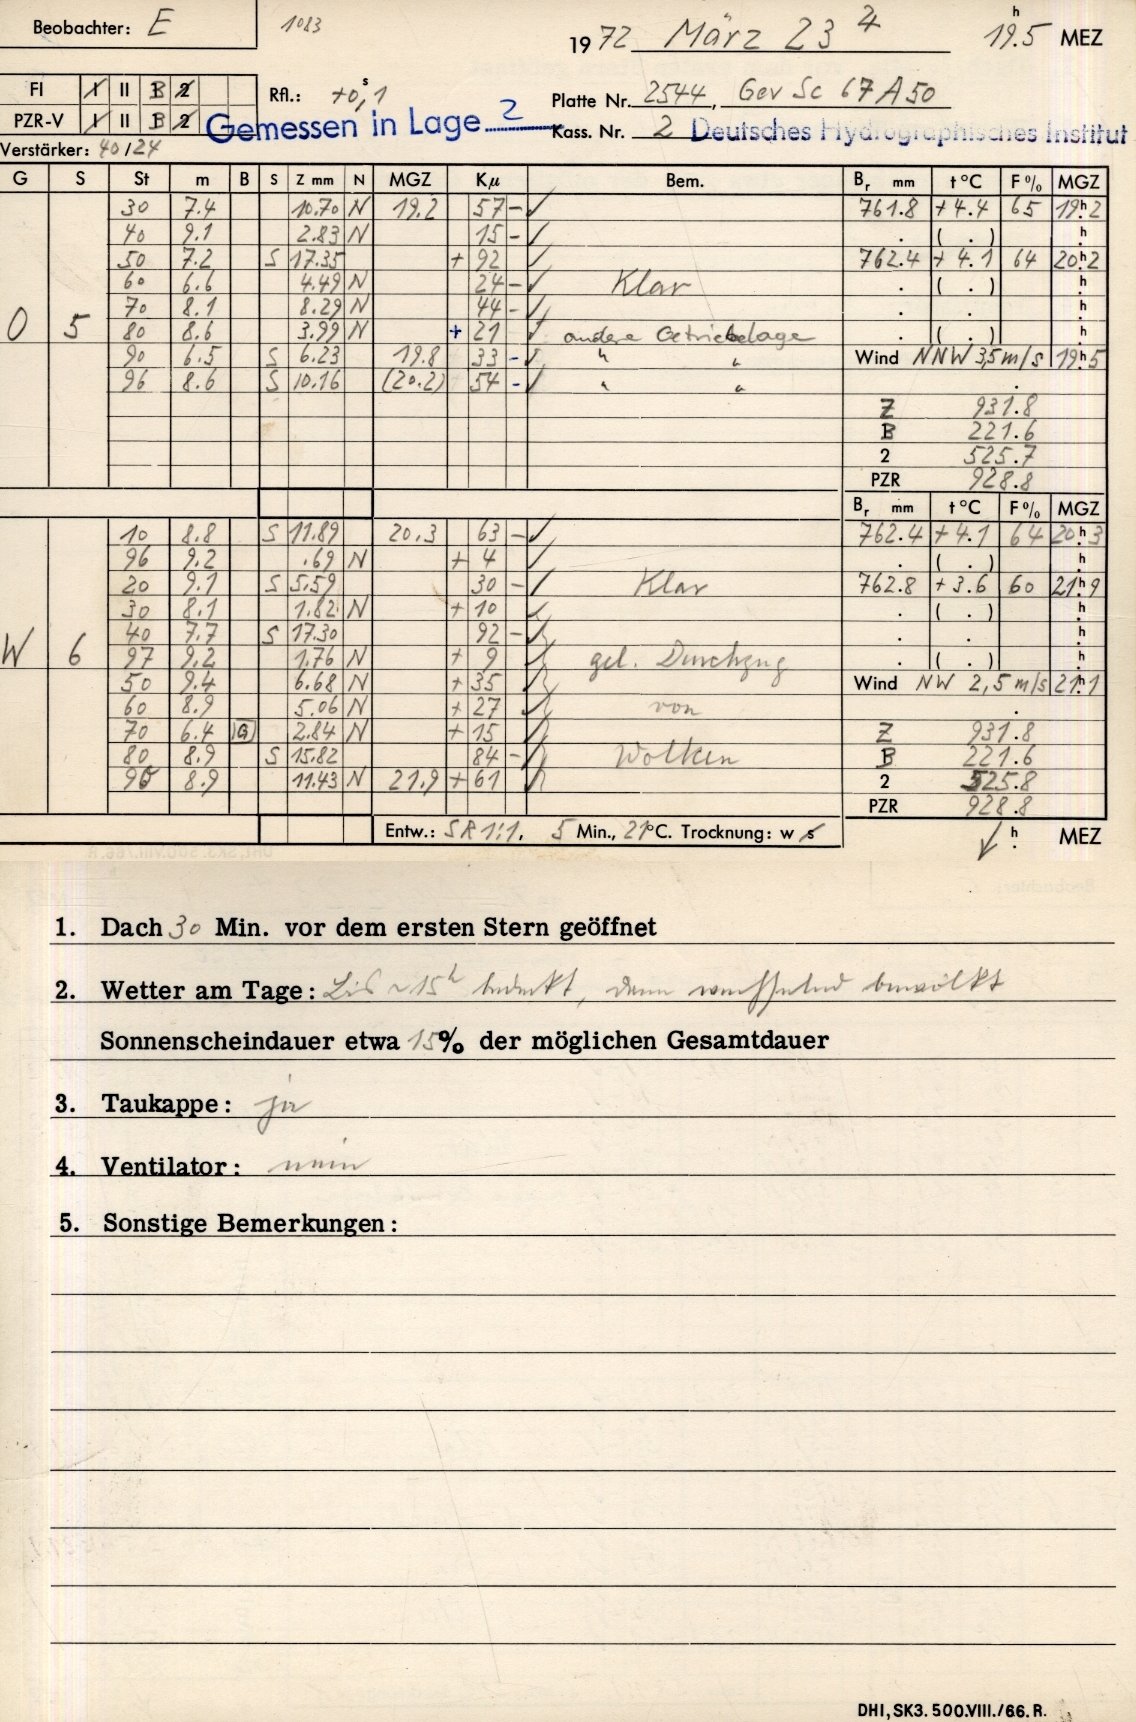 Beobachter: E 1083 1972 März 23 4 19h.5 MEZ
FI I II B 2 Rfl.: +0s,1 Platte Nr. 2544, Gev Sc 67 A 50
PZR-V I II B 2 Gemessen in Lage 2 Kass. Nr. 2 Deutsches Hydrographisches Institut
Verstärker: 40/24
G S St m B S Z mm N MGZ Kµ Bem. Br mm t °C F % MGZ
30 7.4 10.70 N 19.2 57 - ✓ 761.8 +4.4 65 19h.2
40 9.1 2.83 N 15 - ✓ . ( . ) h.
50 7.2 S 17.35 + 92 ✓ 762.4 +4.1 64 20h.2
60 6.6 4.49 N 24 - ✓ Klar . ( . ) h.
70 8.1 8.29 N 44 - ✓ . . h.
O 5 80 8.6 3.99 N + 21 ✓ andere Getriebelage . ( . ) h.
90 6.5 S 6.23 19.8 33 - ✓ " " Wind NNW 3,5 m/s 19h.5
96 8.6 S 10.16 (20.2) 54 - ✓ " " .
Z 931.8
B 221.6
2 525.7
PZR 928.8
Br mm t °C F % MGZ
10 8.8 S 11.89 20.3 63 - ✓ 762.4 +4.1 64 20h.3
96 9.2 .69 N + 4 ✓ . ( . ) h.
20 9.1 S 5.59 30 - ✓ Klar 762.8 +3.6 60 21h.9
30 8.1 1.82 N + 10 ✓ . ( . ) h.
40 7.7 S 17.30 92 - ✓ . . h.
W 6 97 9.2 1.76 N + 9 ✓ gel. Durchzug . ( . ) h.
50 9.4 6.68 N + 35 ✓ Wind NW 2,5 m/s 21h.1
60 8.9 5.06 N + 27 ✓ von .
70 6.4 G 2.84 N + 15 ✓ Z 931.8
80 8.9 S 15.82 84 - ✓ Wolken B 221.6
8.9 11.43 N 21.9 + 61 ✓ 2 525.8
PZR 928.8
Entw.: SR 1:1, 5 Min., 21°C. Trocknung: w s ✓ h. MEZ
1. Dach 30 Min. vor dem ersten Stern geöffnet
2. Wetter am Tage: bis ~15h bedeckt, dann wechselnd bewölkt
Sonnenscheindauer etwa 15% der möglichen Gesamtdauer
3. Taukappe: ja
4. Ventilator: nein
5. Sonstige Bemerkungen:
DHI, SK3. 500.VIII./66. R.